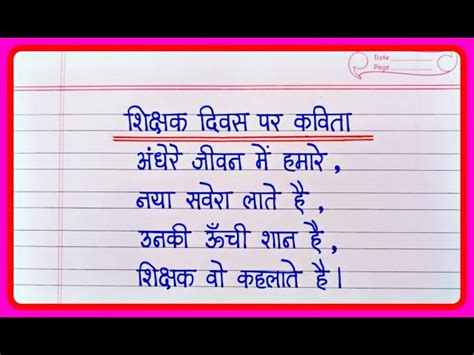 Date
Page
शिक्षक दिवस पर कविता
अंधेरे जीवन में हमारे,
नया सवेरा लाते है,
उनकी ऊँची शान है,
शिक्षक वो कहलाते है।